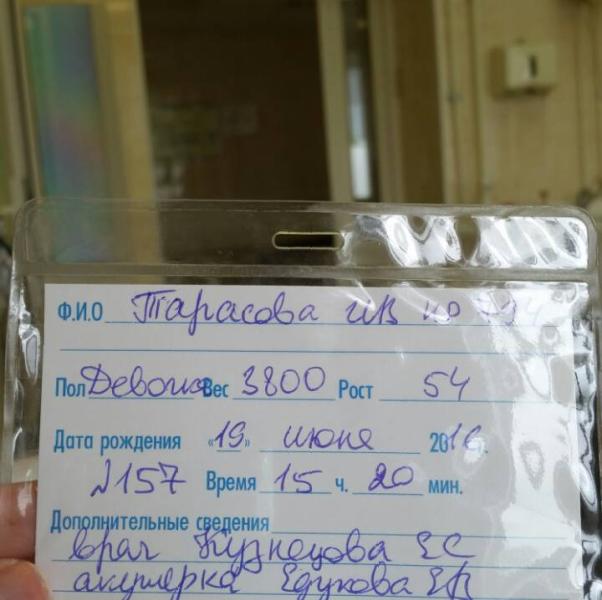 Ф.И.О Тарасова ИВ
Пол Девочка Вес 3800 Рост 54
Дата рождения «19» июня 2016г.
№157 Время 15 ч. 20 мин.
Дополнительные сведения
врач Кузнецова ЕС
акушерка Едукова ЕВ